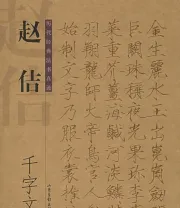 赵佶
千字文
金生麗水玉出崑崗劍
巨闕珠稱夜光果珍李
菜重芥薑海鹹河淡鱗
羽翔龍師火帝鳥官人
始制文字乃服衣裳推